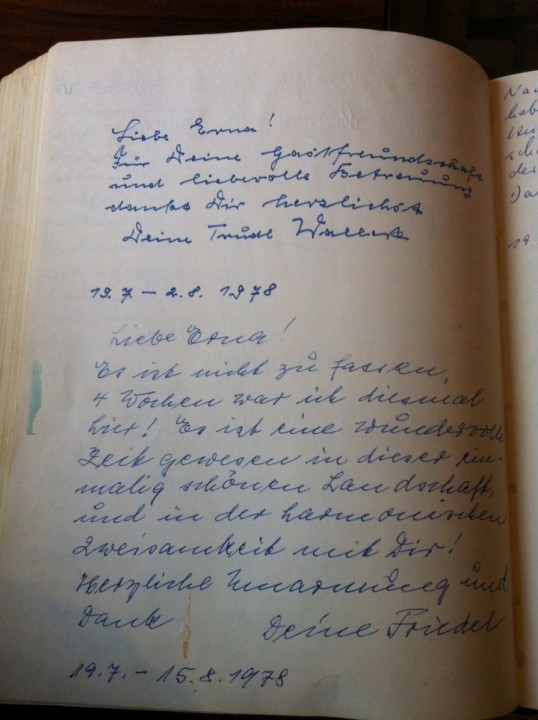 Liebe Erna!
Für Deine Gastfreundschaft
und liebevolle Betreuung
dankt Dir herzlichst
Deine Trudl
19.7. – 2.8. 1978
Liebe Erna!
Es ist nicht zu fassen,
4 Wochen war ich diesmal
hier! Es ist eine wundervolle
Zeit gewesen in dieser ein-
malig schönen Landschaft,
und in der harmonischen
Zweisamkeit mit Dir!
Herzliche Umarmung und
Dank Deine Friedel
19.7. – 15.8.1978